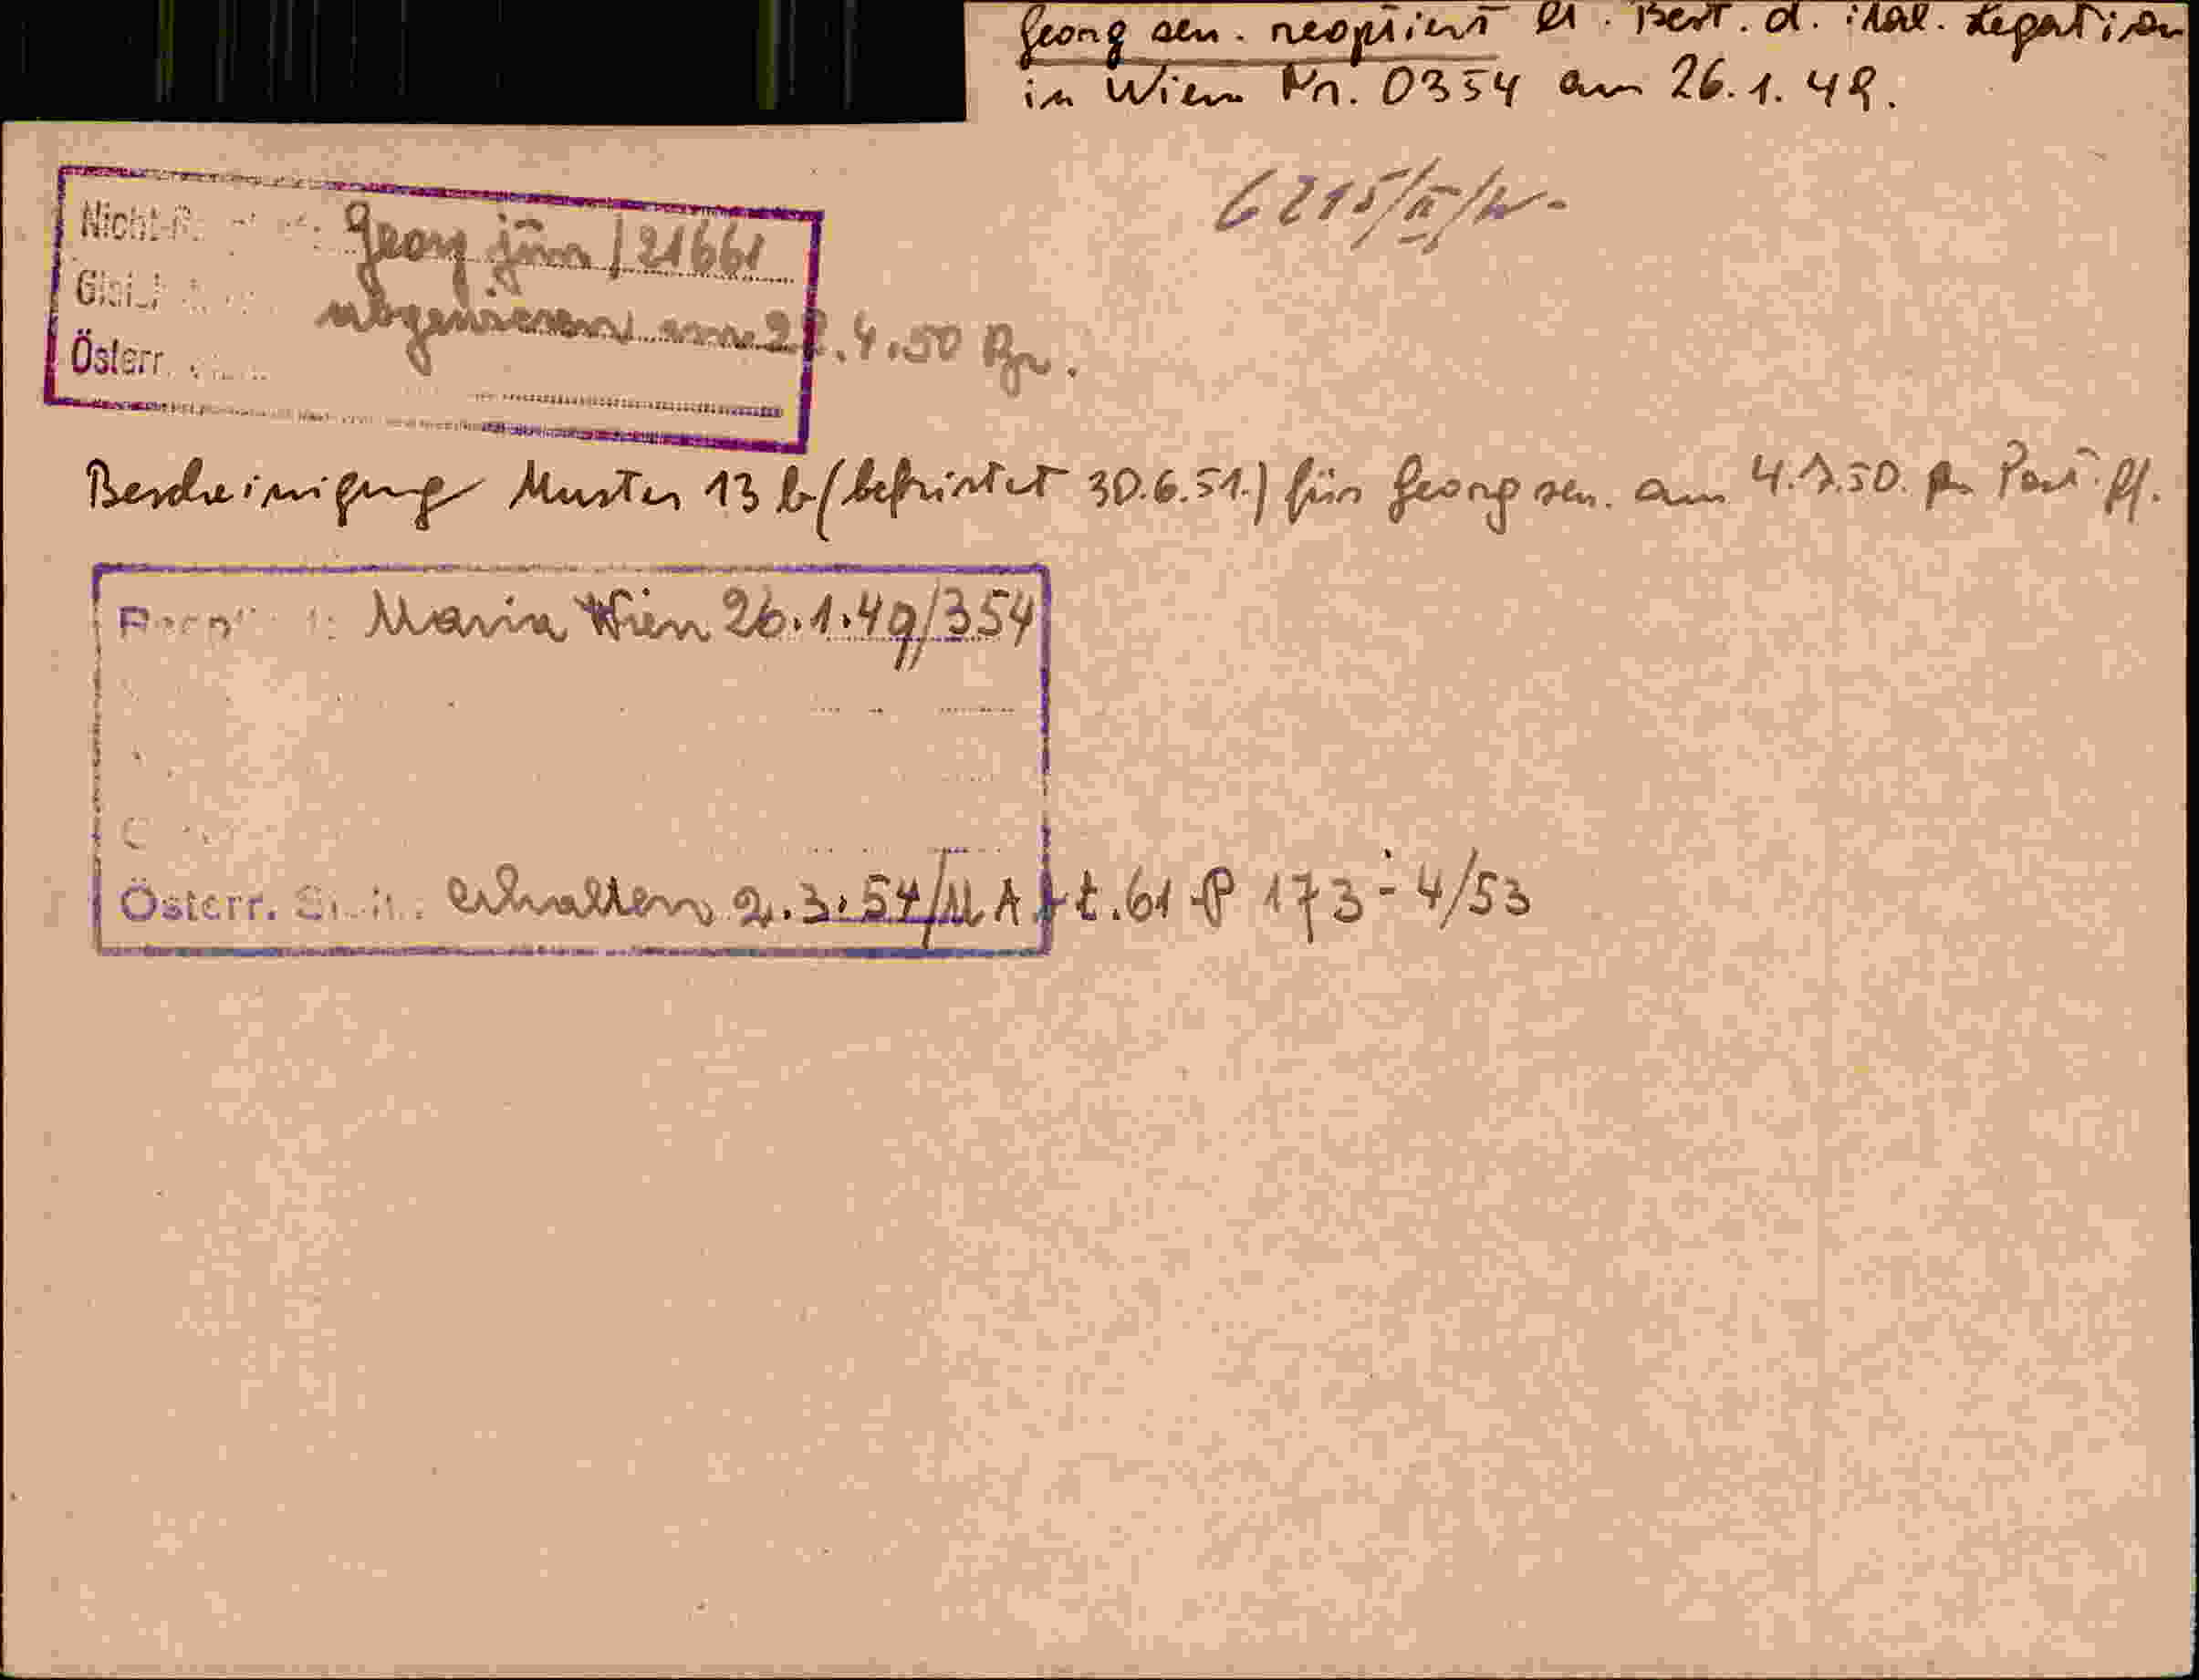 Georg sen. reoptiert lt. Best. d. ital. Legation
in Wien Nr. 0354 am 26.1.49.
6215/II/W-
Nicht- Georg jun / 21661
abgewiesen am 22.4.50
Österr.
Bescheinigung Muster 13 b (befristet 30.6.51.) für Georg sen. am 4.7.50. per Post.
Maria Wien 26.1.49/354
Österr. erhalten 2.3.54/MAbt.61 P 173-4/53